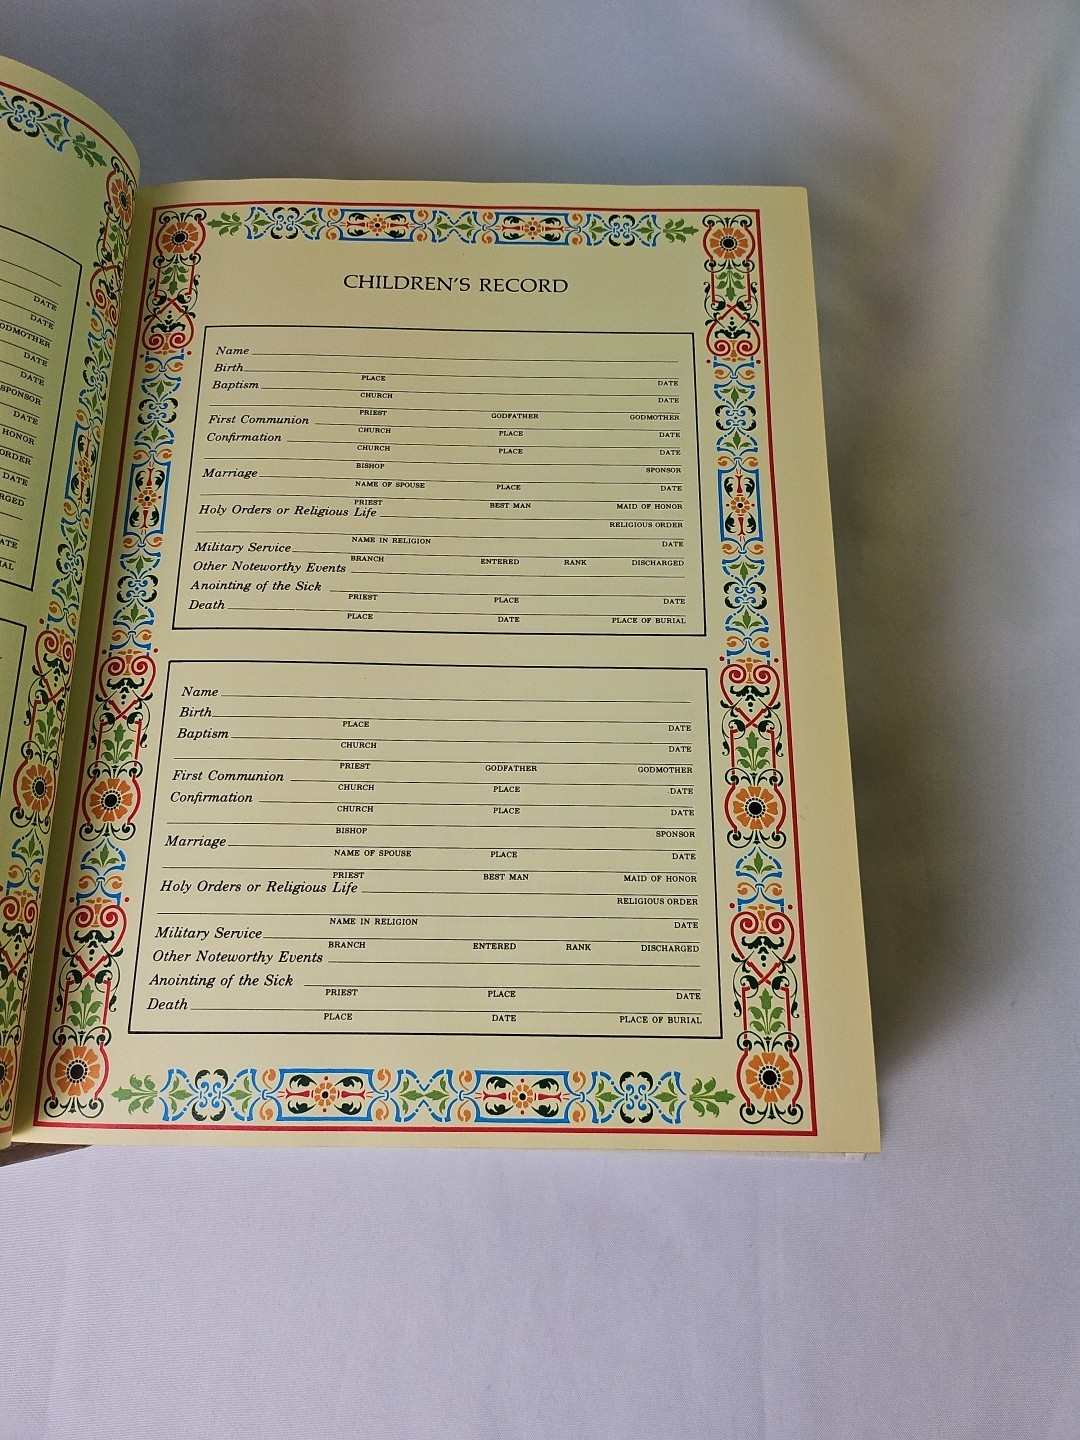 DATE
DATE
DATE
DATE
SPONSOR
DATE
HONOR
ORDER
DATE
CHILDREN'S RECORD
Name
Birth
PLACE DATE
Baptism
CHURCH DATE
PRIEST GODFATHER GODMOTHER
First Communion
CHURCH PLACE DATE
Confirmation
CHURCH PLACE DATE
BISHOP SPONSOR
Marriage
NAME OF SPOUSE PLACE DATE
PRIEST BEST MAN MAID OF HONOR
Holy Orders or Religious Life
RELIGIOUS ORDER
NAME IN RELIGION DATE
Military Service
BRANCH ENTERED RANK DISCHARGED
Other Noteworthy Events
Anointing of the Sick
PRIEST PLACE DATE
Death
PLACE DATE PLACE OF BURIAL
Name
Birth
PLACE DATE
Baptism
CHURCH DATE
PRIEST GODFATHER GODMOTHER
First Communion
CHURCH PLACE DATE
Confirmation
CHURCH PLACE DATE
BISHOP SPONSOR
Marriage
NAME OF SPOUSE PLACE DATE
PRIEST BEST MAN MAID OF HONOR
Holy Orders or Religious Life
RELIGIOUS ORDER
NAME IN RELIGION DATE
Military Service
BRANCH ENTERED RANK DISCHARGED
Other Noteworthy Events
Anointing of the Sick
PRIEST PLACE DATE
Death
PLACE DATE PLACE OF BURIAL